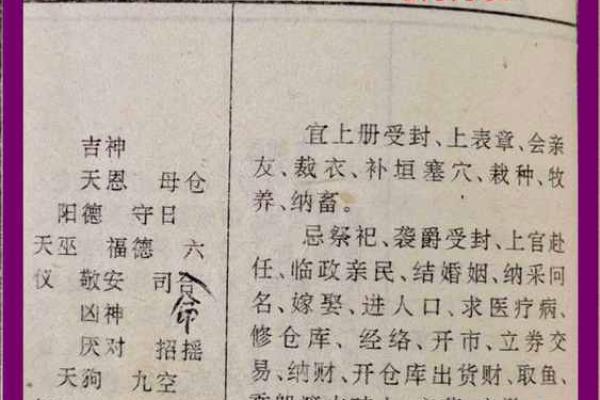 吉神
天恩 母仓
阳德 守日
天巫 福德 六
仪 敬安 司合
命
凶神
厌对 招摇
天狗 九空
宜上册受封、上表章、会亲
友、裁衣、补垣塞穴、栽种、牧
养、纳畜。
忌祭祀、袭爵受封、上官赴
任、临政亲民、结婚姻、纳采问
名、嫁娶、进人口、求医疗病、
修仓库、经络、开市、立券交
易、纳财、开仓库出货财、取鱼、